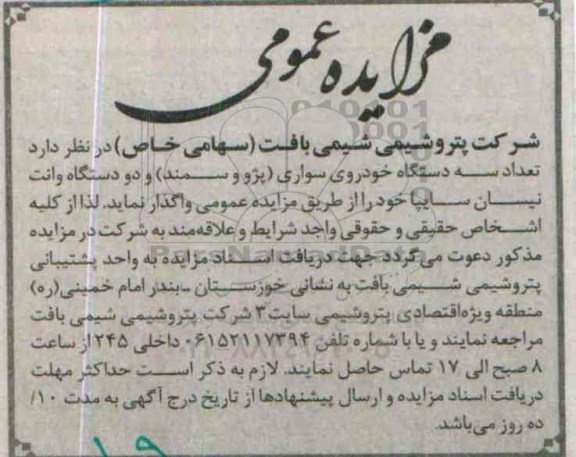 مزایده عمومی
شرکت پتروشیمی شیمی بافت (سهامی خاص) در نظر دارد
تعداد سه دستگاه خودروی سواری (پژو و سمند) و دو دستگاه وانت
نیسان سایپا خود را از طریق مزایده عمومی واگذار نماید. لذا از کلیه
اشخاص حقیقی و حقوقی واجد شرایط و علاقه‌مند به شرکت در مزایده
مذکور دعوت می‌گردد جهت دریافت اسناد مزایده به واحد پشتیبانی
پتروشیمی شیمی بافت به نشانی خوزستان - بندر امام خمینی(ره)
منطقه ویژه‌اقتصادی پتروشیمی سایت۳ شرکت پتروشیمی شیمی بافت
مراجعه نمایند و یا با شماره تلفن ۰۶۱۵۲۱۱۷۳۹۴ داخلی ۲۴۵ از ساعت
۸ صبح الی ۱۷ تماس حاصل نمایند. لازم به ذکر است حداکثر مهلت
دریافت اسناد مزایده و ارسال پیشنهادها از تاریخ درج آگهی به مدت ۱۰/
ده روز می‌باشد.
۱۹